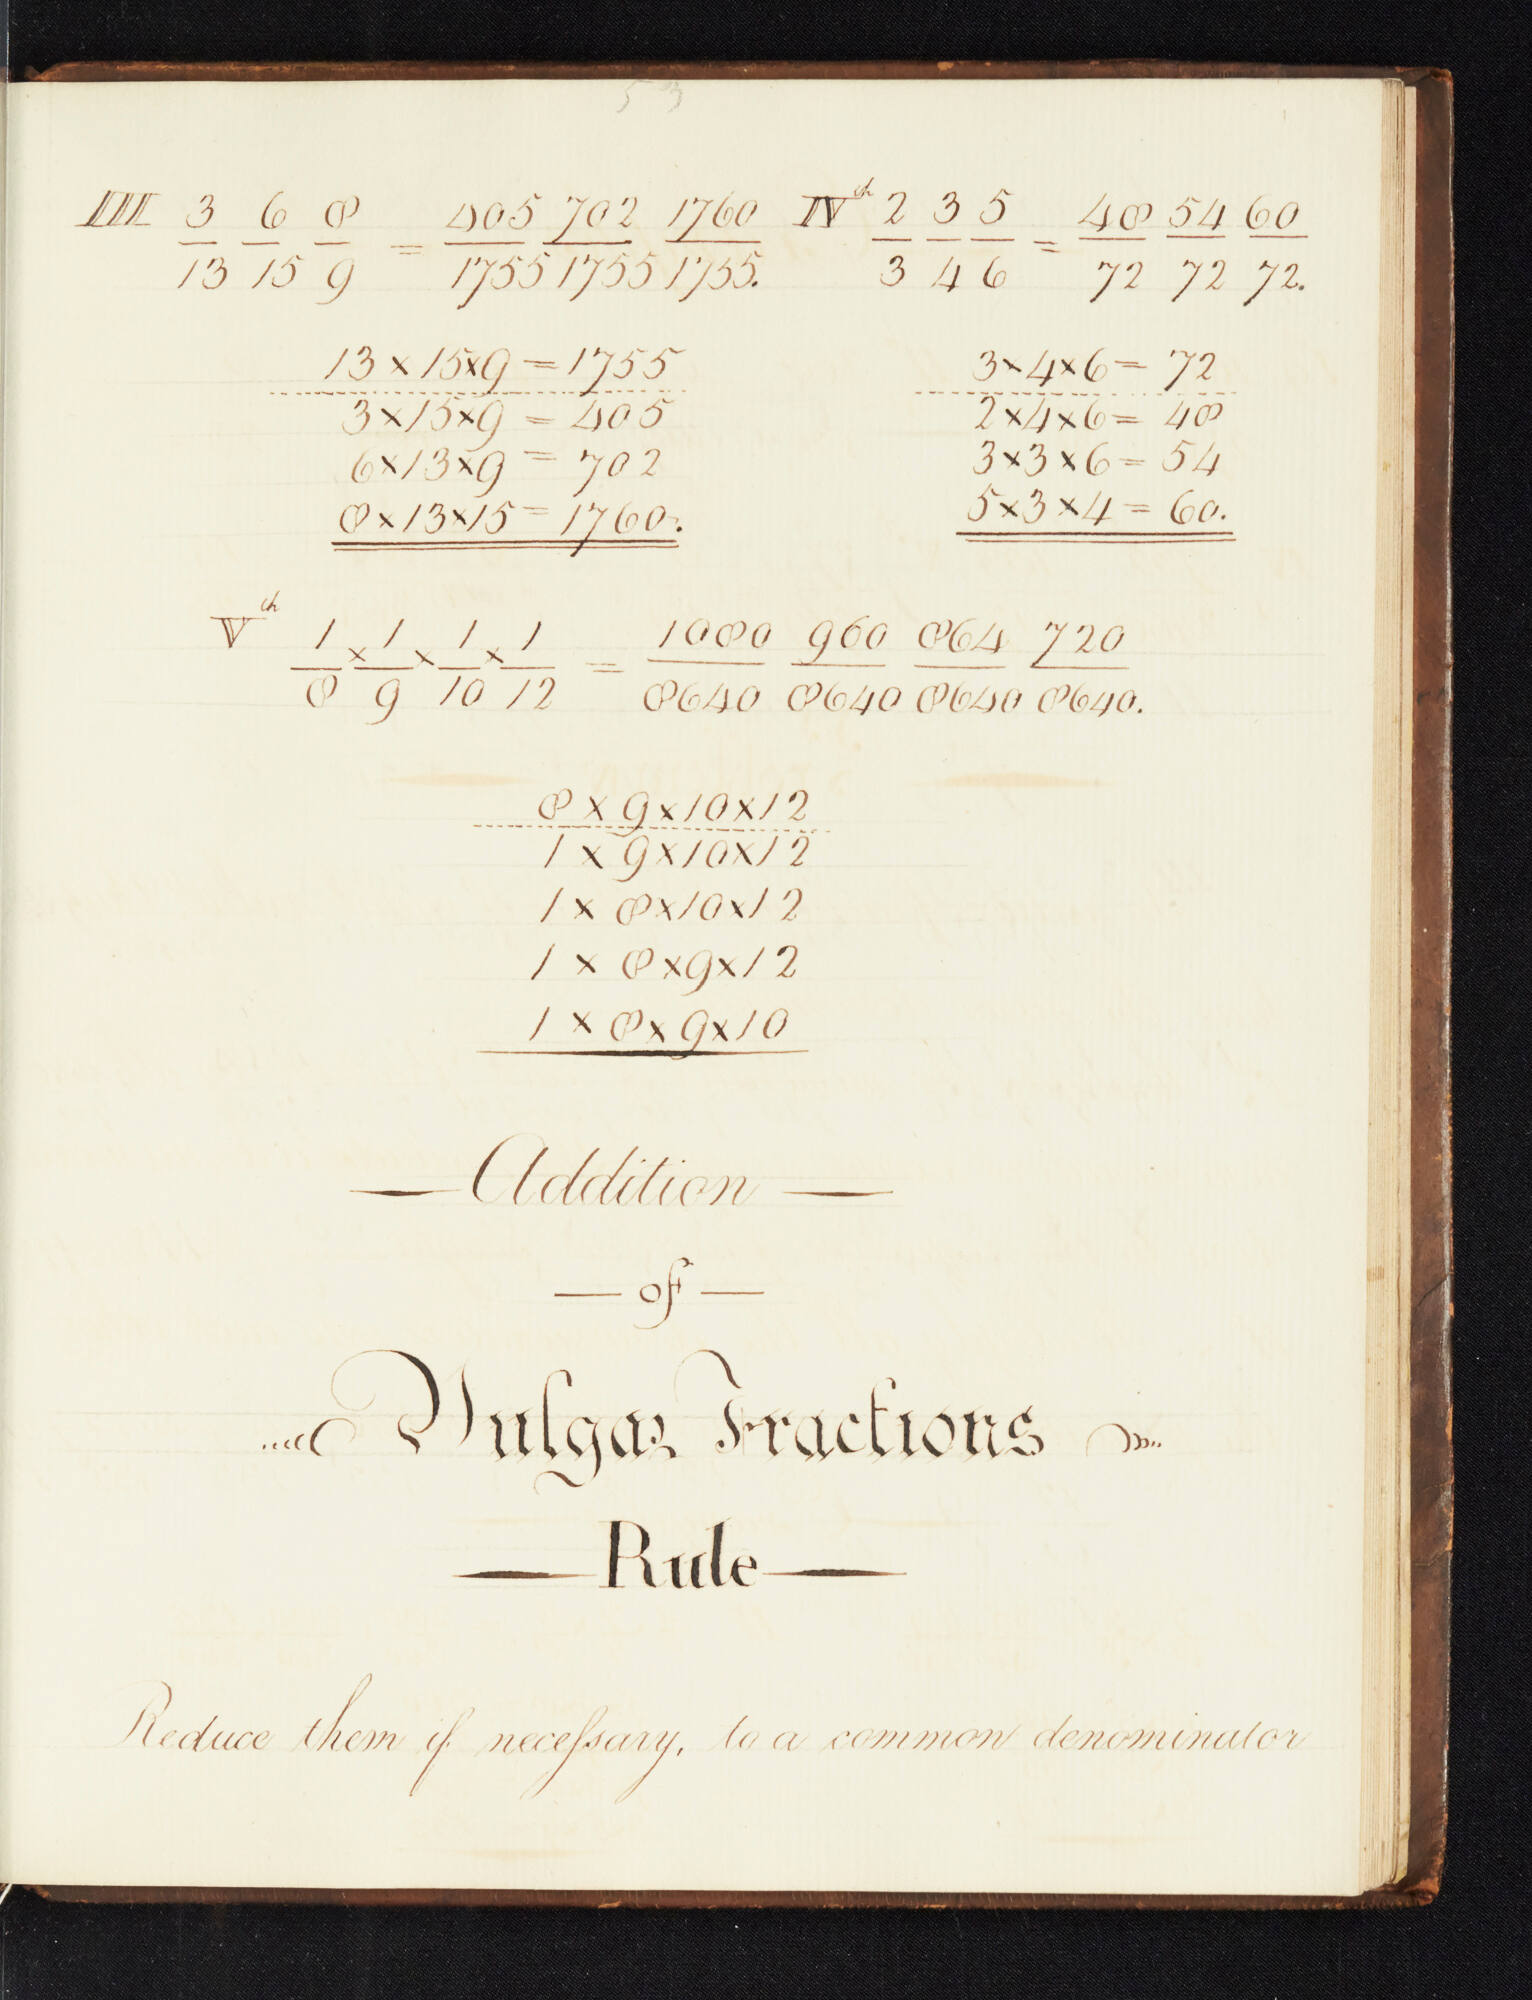 53
III 3/13 6/15 8/9 = 405/1755 702/1755 1760/1755. IVth 2/3 3/4 5/6 = 48/72 54/72 60/72.
13 × 15 × 9 = 1755
3 × 15 × 9 = 405
6 × 13 × 9 = 702
8 × 13 × 15 = 1760.
3 × 4 × 6 = 72
2 × 4 × 6 = 48
3 × 3 × 6 = 54
5 × 3 × 4 = 60.
Vth 1/8 × 1/9 × 1/10 × 1/12 = 1080/8640 960/8640 864/8640 720/8640.
8 × 9 × 10 × 12
1 × 9 × 10 × 12
1 × 8 × 10 × 12
1 × 8 × 9 × 12
1 × 8 × 9 × 10
Addition
of
Vulgar Fractions
Rule
Reduce them if neceſsary, to a common denominator